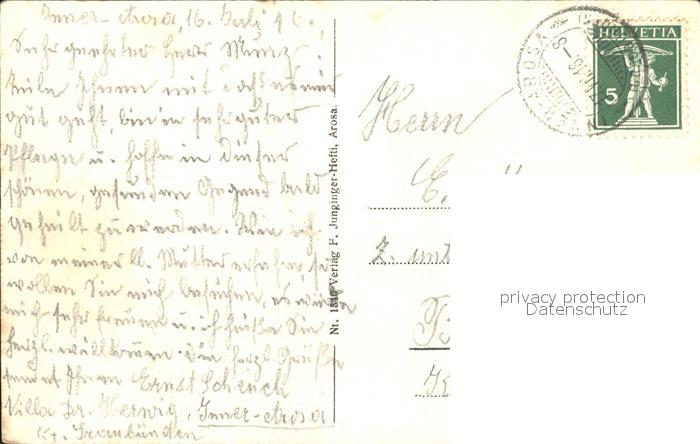 Inner-Arosa, 16. Juli 16.
Sehr geehrter Herr Münz
teile Ihnen mit daß es mir
gut geht, bin in sehr guter
Pflege u. hoffe in dieser
schönen, gesunden Gegend bald
geheilt zu werden. Wie ich
von meiner lb. Mutter erfahre,
wollen Sie mich besuchen, es würde
mich sehr freuen u. ich heiße Sie
herzl. willkommen. herzl. Grüße
sendet Ihnen Ernst Scheuch
Villa Dr. Herwig, Inner-Arosa
Kt. Graubünden
Nt. Verlag F. Junginger-Hefti, Arosa.
HELVETIA
5
INNER-AROSA
Herrn
E.
z. unt
privacy protection
Datenschutz